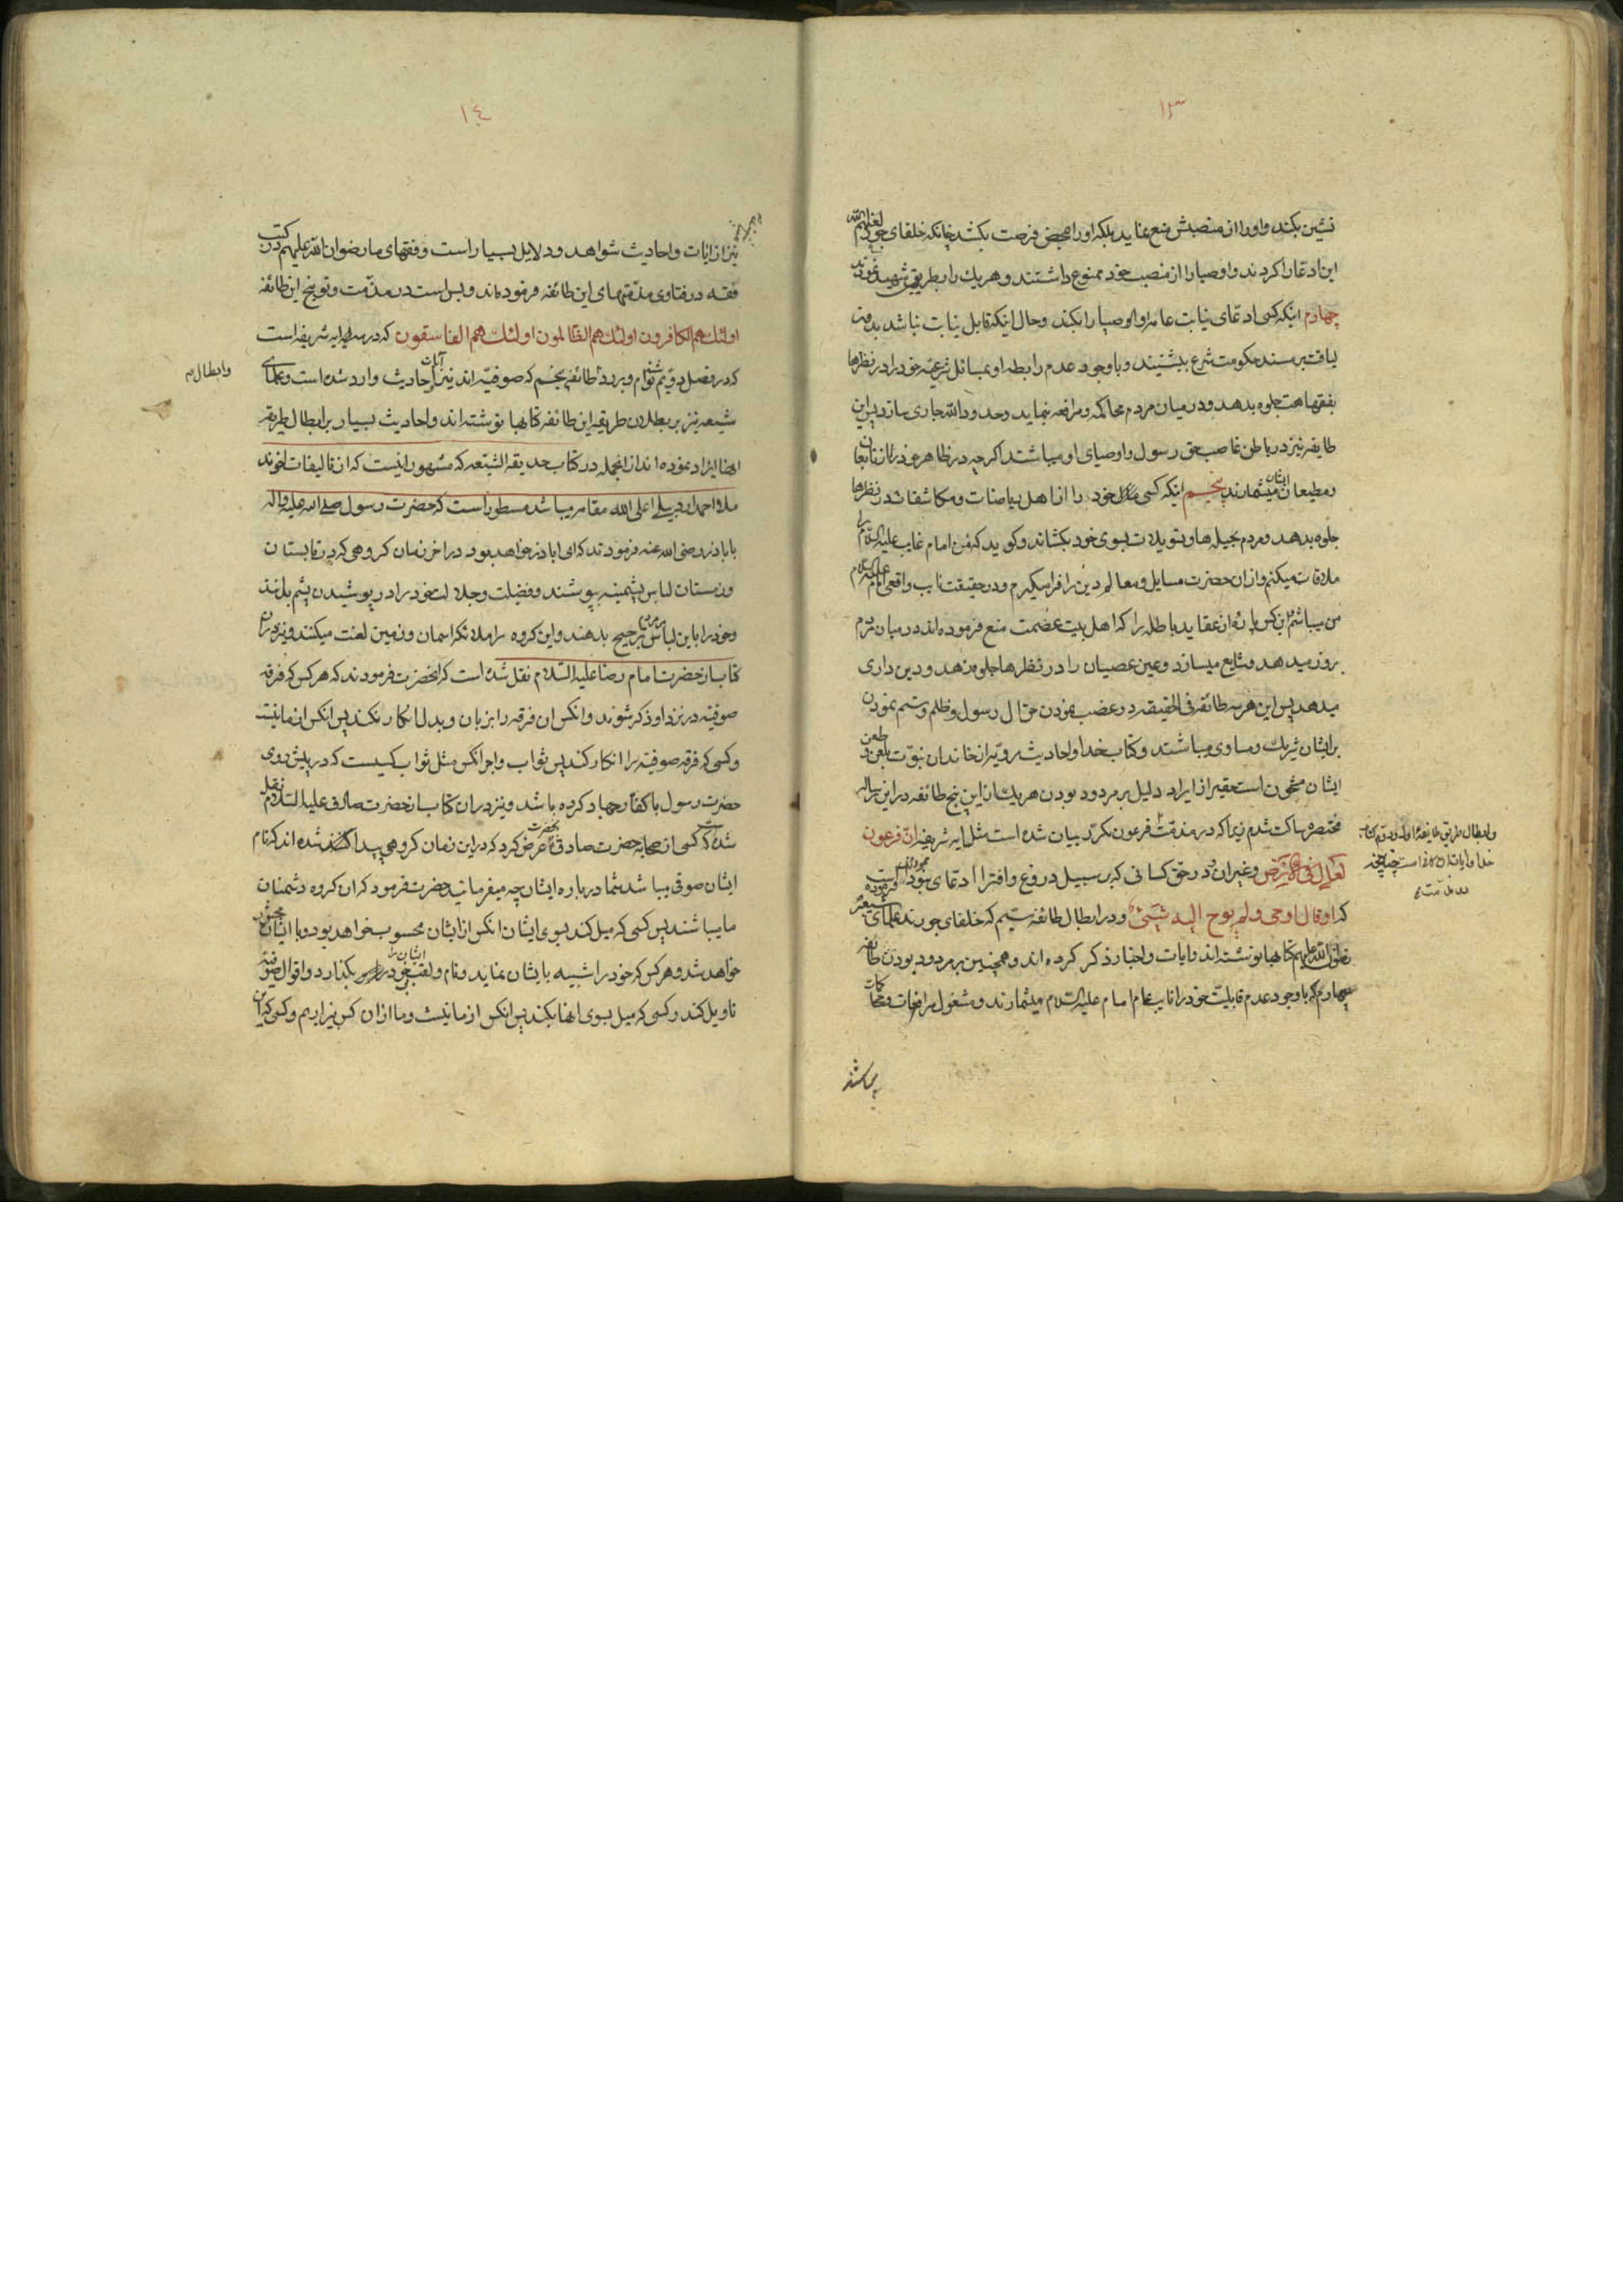 ١٣
نشین بکند و او را از منصبش منع نماید بلکه او را بمحض فرصت بکشد چنانکه خلفای جور لعنهم الله
این ادعا را کردند و اوصیا را از منصب خود ممنوع داشتند و هر یك را بطریقی شهید نمودند
چهارم اینکه کسی ادعای نیابت عامه او اوصیا را بکند و حال اینکه قابل نیابت نباشد بدون
لیاقت بر مسند حکومت شرع بنشیند و با وجود عدم رابطه او بمسائل شرعیه خود را در نظرها
بفقهاهت جلوه بدهد و در میان مردم محاکمه و مرافعه بنماید و حدود الله جاری سازد پس این
طایفه نیز در باطن غاصب حق رسول و اوصیای او میباشند اگرچه در ظاهر خود را از تابعان
و مطیعان ایشان میشمارند پنجم اینکه کسی خود را از اهل ریاضات و مکاشفات در نظرها
جلوه بدهد و مردم بحیله ها و تویلات بسوی خود بکشاند و کوید که من امام غایب علیه السلام را
ملاقات میکنم و از آن حضرت مسایل و معالم دین را فرا میگیرم و در حقیقت نایب واقعی امام علیه السلام
من میباشم این کس پاره از عقاید باطله را که اهل بیت عصمت منع فرموده اند در میان مردم
بروز میدهد و شایع میسازد و عین عصیان را در نظرها جلوه زهد و دین داری
میدهد پس این هر سه طائفه فی الحقیقه در غصب نمودن حق ال رسول و ظلم و ستم نمودن
بر ایشان شریك و مساوی میباشند و کتاب خدا و احادیث مرویه از خاندان نبوت بلعن و طعن
ایشان مشحون است حقیر از ایراد دلیل بر مردود بودن هر یك از این پنج طائفه در این رساله
مختصره ساکت شدم زیرا که در مذمت فرعون مکرر بیان شده است مثل ایه شریفه ان فرعون
لعال فی الارض و غیر ان و در حق کسانی که بر سبیل دروغ و افترا ادعای نبوت نموده اند فرموده است
که او قال اوحی و لم یوح الیه شیئ و در ابطال طائفه سیم که خلفای جورند علمای شیعه
رضوان الله علیهم کتابها نوشته اند و ایات و اخبار ذکر کرده اند و همچنین بر مردود بودن طائفه
چهارم که با وجود عدم قابلیت خود را نایب عام امام علیه السلام میشمارند و مشغول مرافعات و محاکمات
میباشند
و ابطال طریق طایفه اول و دویم کتاب
خدا و ایات قران کافی است چنانچه
در مذمت
١٤
نیز از ایات و احادیث شواهد و دلایل بسیار است و فقهای ما رضوان الله علیهم در کتب
فقه در فتاوی مذمتهای این طائفه فرموده اند و بس است در مذمت و توبیخ این طائفه
اولئك هم الکافرون اولئك هم الظالمون اولئك هم الفاسقون که در سه ایه شریفه است
که در فصل دویم نوشتم و بر رد طائفه پنجم که صوفیه اند نیز آیات و احادیث وارد شده است و علمای
شیعه نیز بر بطلان طریقه این طائفه کتابها نوشته اند و احادیث بسیار بر ابطال طریقه
و ابطال
انها ایراد نموده اند از انجمله در کتاب حدیقة الشیعه که مشهور انیست که از تالیفات اخوند
ملا احمد اردبیلی اعلی الله مقامه میباشد مسطور است که حضرت رسول صلی الله علیه و اله
باباذر رضی الله عنه فرمودند که ای اباذر خواهد بود در اخر زمان کروهی که در تابستان
و زمستان لباس پشمینه پوشند و فضیلت و جلالت خود را در پوشیدن پشم بدانند
و خود را باین لباس بر مردم ترجیح بدهند و این کروه را ملائکه اسمان و زمین لعنت میکنند و نیز در ان
کتاب از حضرت امام رضا علیه السلام نقل شده است که انحضرت فرمودند که هر کس که فرقه
صوفیه در نزد او ذکر شوند و انکس ان فرقه را بزبان و بدل انکار نکند پس انکس از ما نیست
و کسی که فرقه صوفیه را انکار کند پس ثواب و اجر انکس مثل ثواب کسیست که در پیش روی
حضرت رسول با کفار جهاد کرده باشد و نیز در ان کتاب از حضرت صادق علیه السلام نقل
شده که کسی از صحابه حضرت صادق بحضرت عرض کرد که در این زمان کروهی پیدا شده اند که نام
ایشان صوفی میباشد شما درباره ایشان چه میفرمائید حضرت فرمود که ان کروه دشمنان
ما میباشند پس کسی که میل کند بسوی ایشان انکس از ایشان محسوب خواهد بود و با ایشان محشور
خواهد شد و هر کس که خود را شبیه بایشان نماید و نام و لقب ایشان را بر خود بکذارد و اقوال صوفیه
تاویل کند و کسی که میل بسوی انها بکند پس انکس از ما نیست و ما از ان کس بیزاریم و کسی که